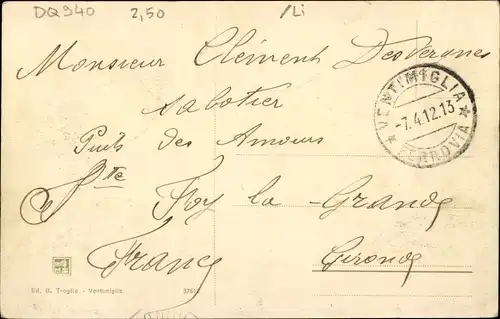 DQ940 2,50 /Li
Monsieur Clément Desvergnes
sabotier
VENTIMIGLIA
-7.4.12.13
FERROVIA
Puits des Amours
Ste Foy la Grande
Gironde
France
Ed. G. Troglia. - Ventimiglia